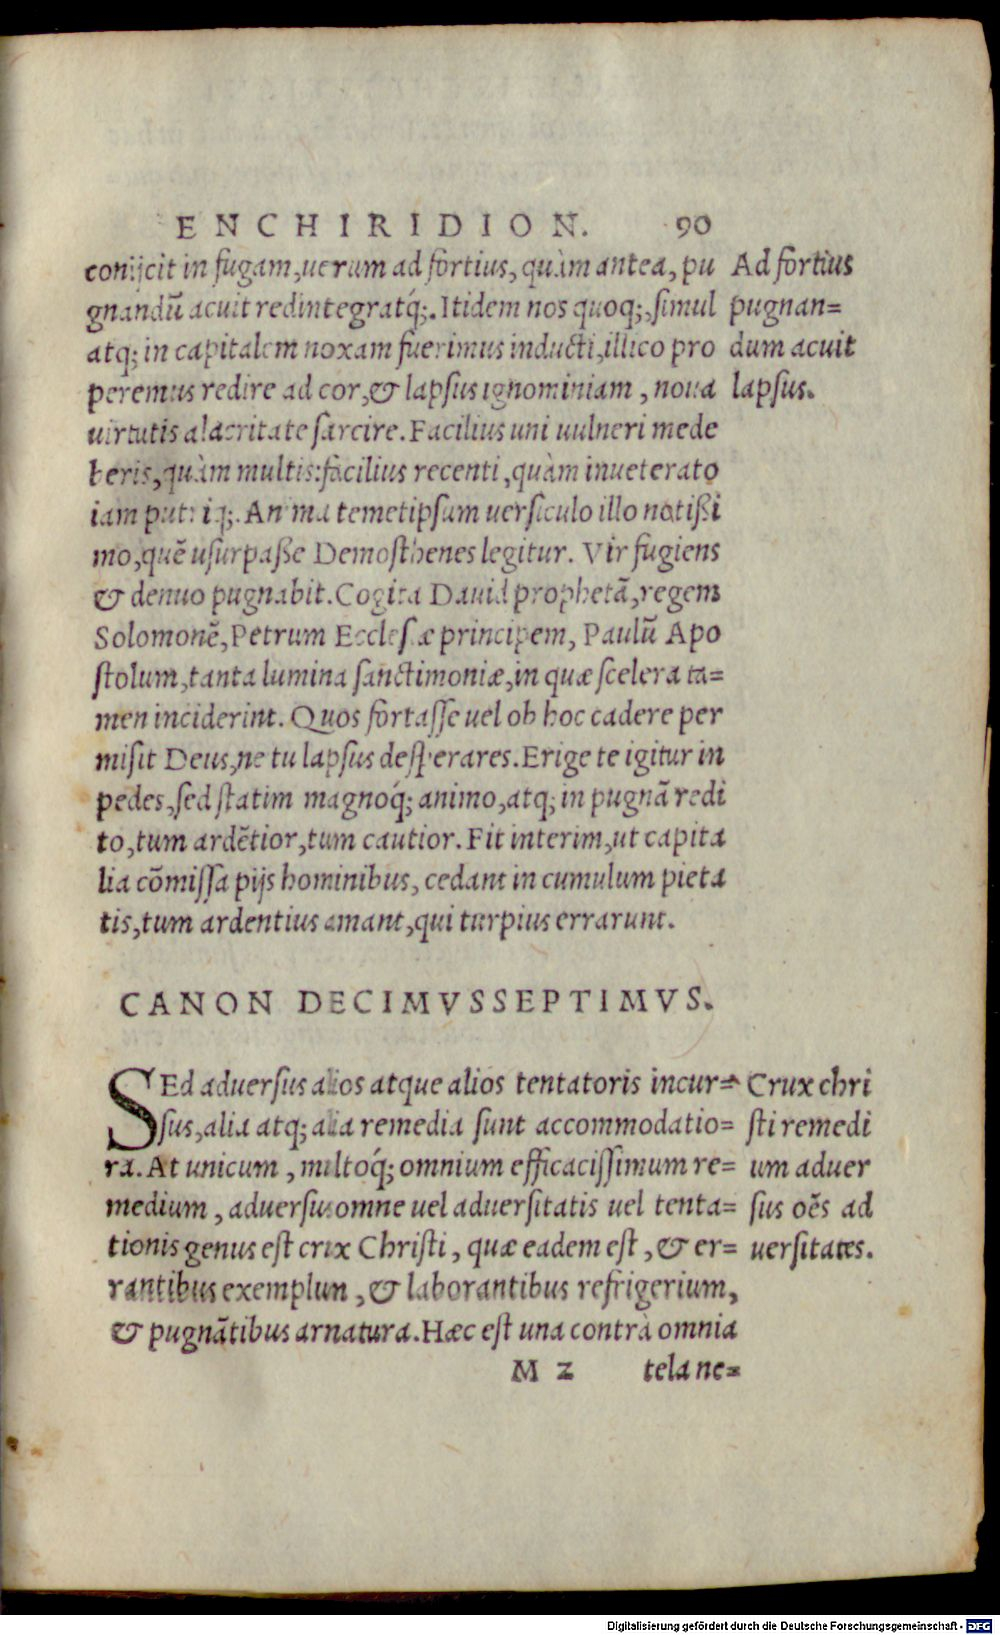 ENCHIRIDION. 90
conijcit in fugam, uerum ad fortius, quàm antea, pu
gnandũ acuit redintegratq́;. Itidem nos quoq;, simul
atq; in capitalem noxam fuerimus inducti, illico pro
peremus redire ad cor, & lapsus ignominiam, noua
uirtutis alacritate sarcire. Facilius uni uulneri mede
beris, quàm multis: facilius recenti, quàm inueterato
iam putriq;. Anima temetipsum uersiculo illo notißi
mo, quẽ usurpaße Demosthenes legitur. Vir fugiens
& denuo pugnabit. Cogita Dauid prophetã, regem
Solomonẽ, Petrum Ecclesiæ principem, Paulũ Apo
stolum, tanta lumina sanctimoniæ, in quæ scelera ta=
men inciderint. Quos fortasse uel ob hoc cadere per
misit Deus, ne tu lapsus desperares. Erige te igitur in
pedes, sed statim magnoq́; animo, atq; in pugnã redi
to, tum ardẽtior, tum cautior. Fit interim, ut capita
lia cõmissa pijs hominibus, cedant in cumulum pieta
tis, tum ardentius amant, qui turpius errarunt.
Ad fortius
pugnan=
dum acuit
lapsus.
CANON DECIMVSSEPTIMVS.
SEd aduersus alios atque alios tentatoris incur=
sus, alia atq; alia remedia sunt accommodatio=
ra. At unicum, multoq́; omnium efficacissimum re=
medium, aduersus omne uel aduersitatis uel tenta=
tionis genus est crux Christi, quæ eadem est, & er=
rantibus exemplum, & laborantibus refrigerium,
& pugnãtibus armatura. Hæc est una contrà omnia
Crux chri
sti remedi
um aduer
sus oẽs ad
uersitates.
M 2 tela ne=
Digitalisierung gefördert durch die Deutsche Forschungsgemeinschaft - DFG